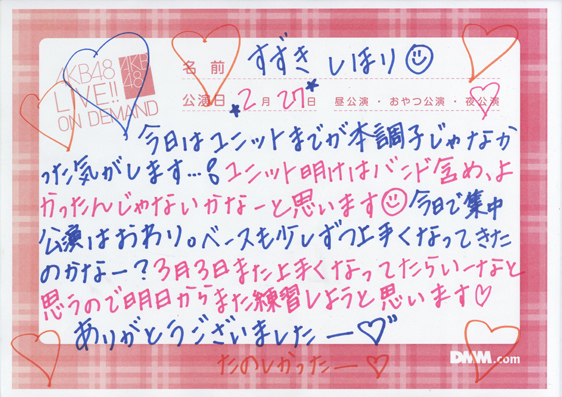 AKB48
LIVE!!
ON DEMAND
AKB
48
名前 すずき しほり
公演日 2月27日 昼公演・おやつ公演・夜公演
今日はユニットまでが本調子じゃなか
った気がします…ユニット明けはバンド含め、よ
かったんじゃないかなーと思います 今日で集中
公演はおわり。ベースも少しずつ上手くなってきた
のかなー?3月3日また上手くなってたらいーなと
思うので明日からまた練習しようと思います♡
ありがとうございましたー♡
たのしかったー♡
DMM.com